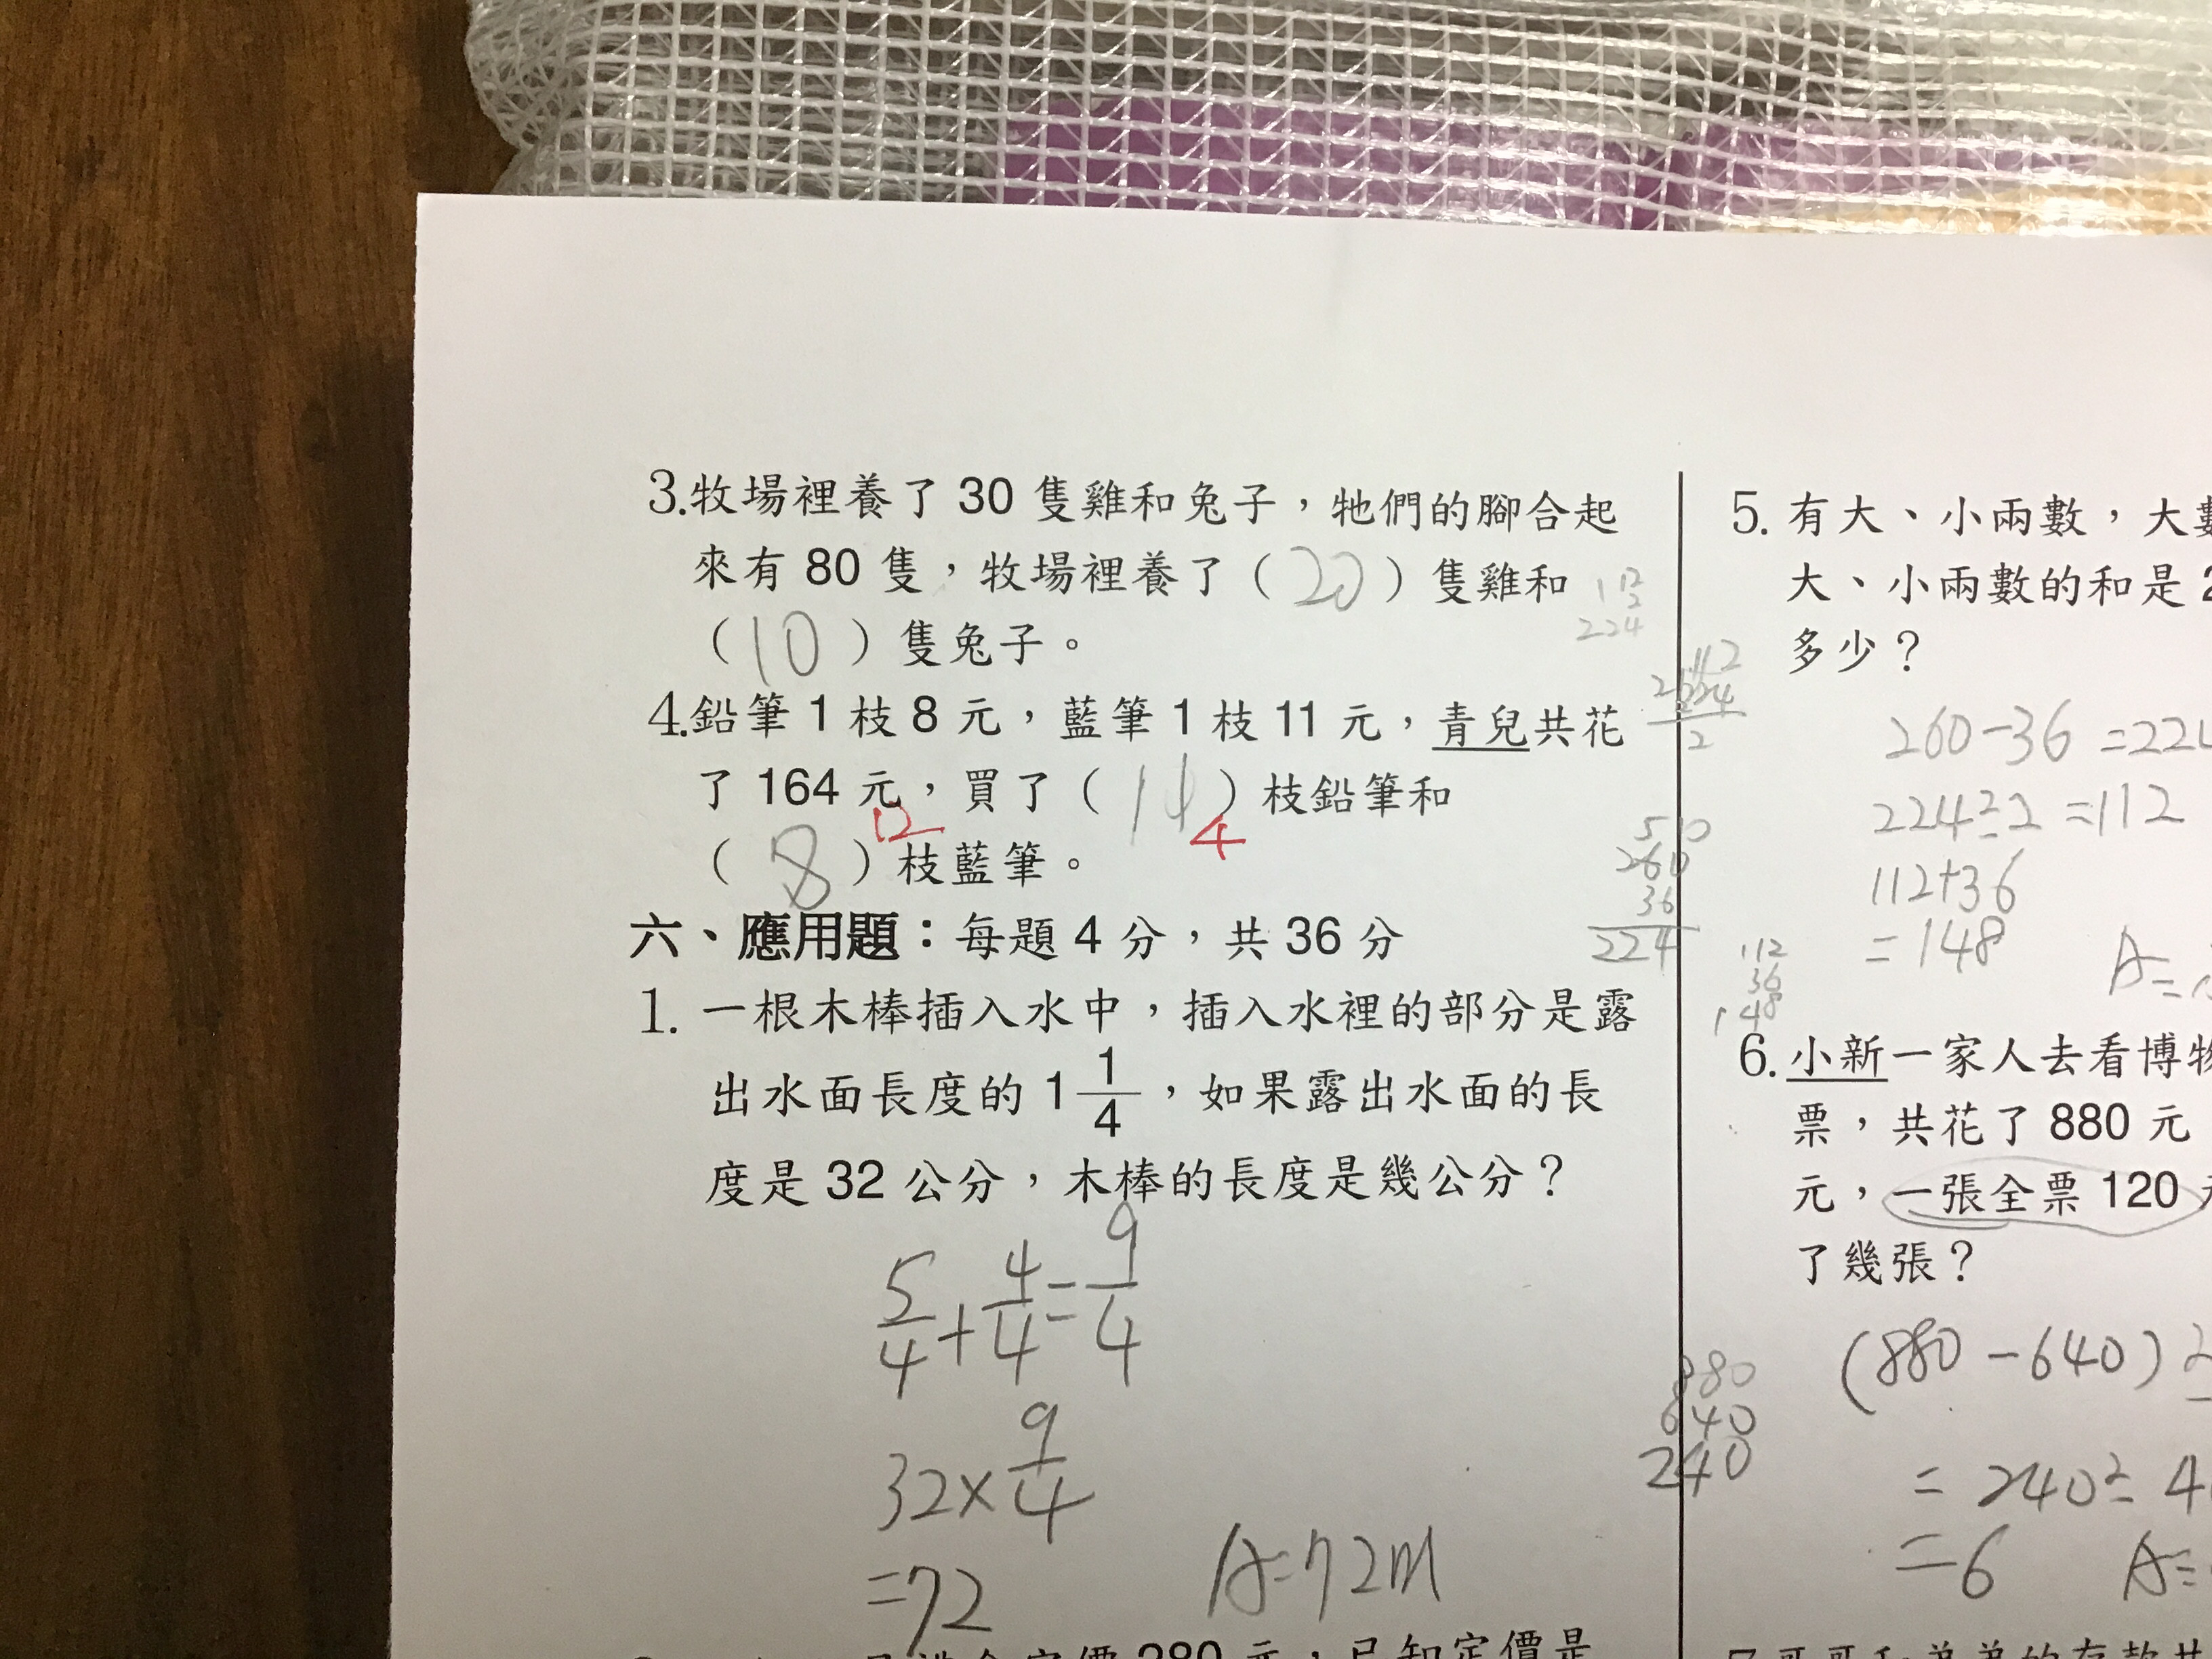 3.牧場裡養了 30 隻雞和兔子，牠們的腳合起
來有 80 隻，牧場裡養了（20）隻雞和
（10）隻兔子。
4.鉛筆 1 枝 8 元，藍筆 1 枝 11 元，青兒共花
了 164 元，買了（ ）枝鉛筆和
4
12
（8）枝藍筆。
六、應用題：每題 4 分，共 36 分
1. 一根木棒插入水中，插入水裡的部分是露
出水面長度的 1 1/4，如果露出水面的長
度是 32 公分，木棒的長度是幾公分？
5/4+4/4=9/4
32×9/4
=72
A=72m
280 元，已知定價是
112
2
224
112
2
260
36
224
112
36
148
880
640
240
5. 有大、小兩數，大
大、小兩數的和是
多少？
260-36=22
224÷2=112
112+36
=148
A=
6. 小新一家人去看博
票，共花了 880 元
元，一張全票 120
了幾張？
(880-640)
=240÷4
=6
A=
7.哥哥和弟弟的存款共